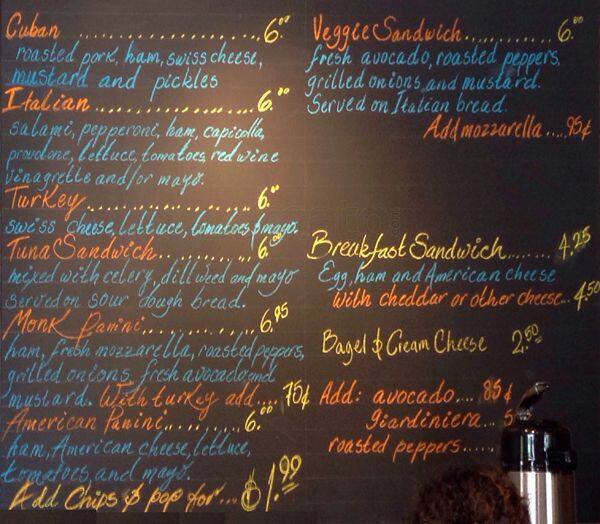 Cuban ............... 6.00
roasted pork, ham, swiss cheese,
mustard and pickles
Italian ............... 6.00
salami, pepperoni, ham, capicolla,
provolone, lettuce, tomatoes, red wine
vinagrette and/or mayo.
Turkey ............... 6.00
swiss cheese, lettuce, tomatoes & mayo.
Tuna Sandwich ............ 6.00
mixed with celery, dill weed and mayo
served on sour dough bread.
Monk Panini ............ 6.95
ham, fresh mozzarella, roasted peppers,
grilled onions, fresh avocado and
mustard. With turkey add.... 75¢
American Panini .......... 6.00
ham, American cheese, lettuce,
tomatoes, and mayo.
Add Chips & pop for.... 1.99
Veggie Sandwich ............ 6.00
fresh avocado, roasted peppers,
grilled onions, and mustard.
Served on Italian bread.
Add mozzarella..... 95¢
Breakfast Sandwich ....... 4.25
Egg, ham and American cheese
with cheddar or other cheese... 4.50
Bagel & Cream Cheese 2.50
Add: avocado.... 85¢
giardiniera...
roasted peppers......